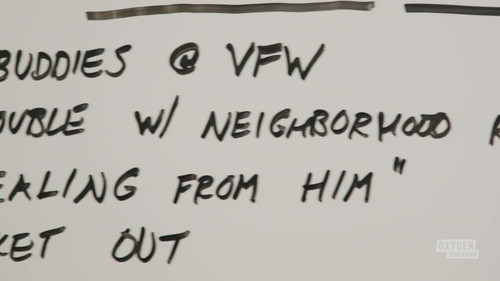 BUDDIES @ VFW
OUBLE W/ NEIGHBORHOOD R
EALING FROM HIM"
KET OUT
OXYGEN
TRUE CRIME